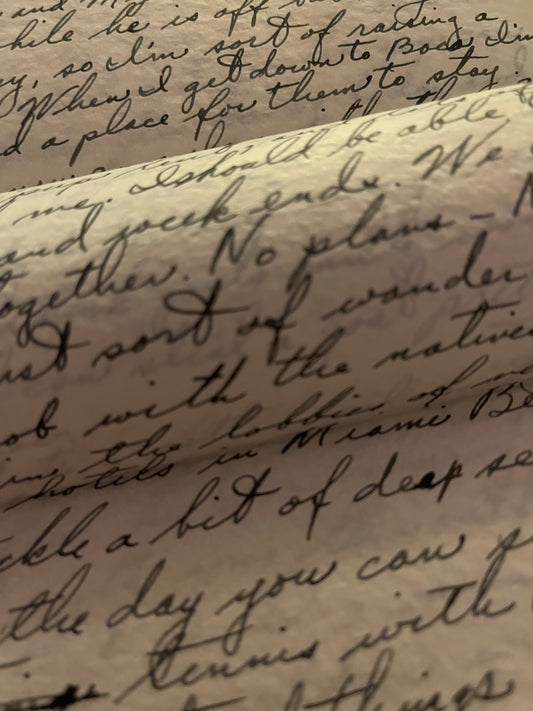 while he is off
so I'm sort of raising a
When I get down to Boca I'm
a place for them to stay.
me. I should be able
and week ends. We
together. No plans - N
ust sort of wander
ob with the natives
in the lobbies of
hotels in Miami Be
ckle a bit of deep se
the day you can
tennis with
things